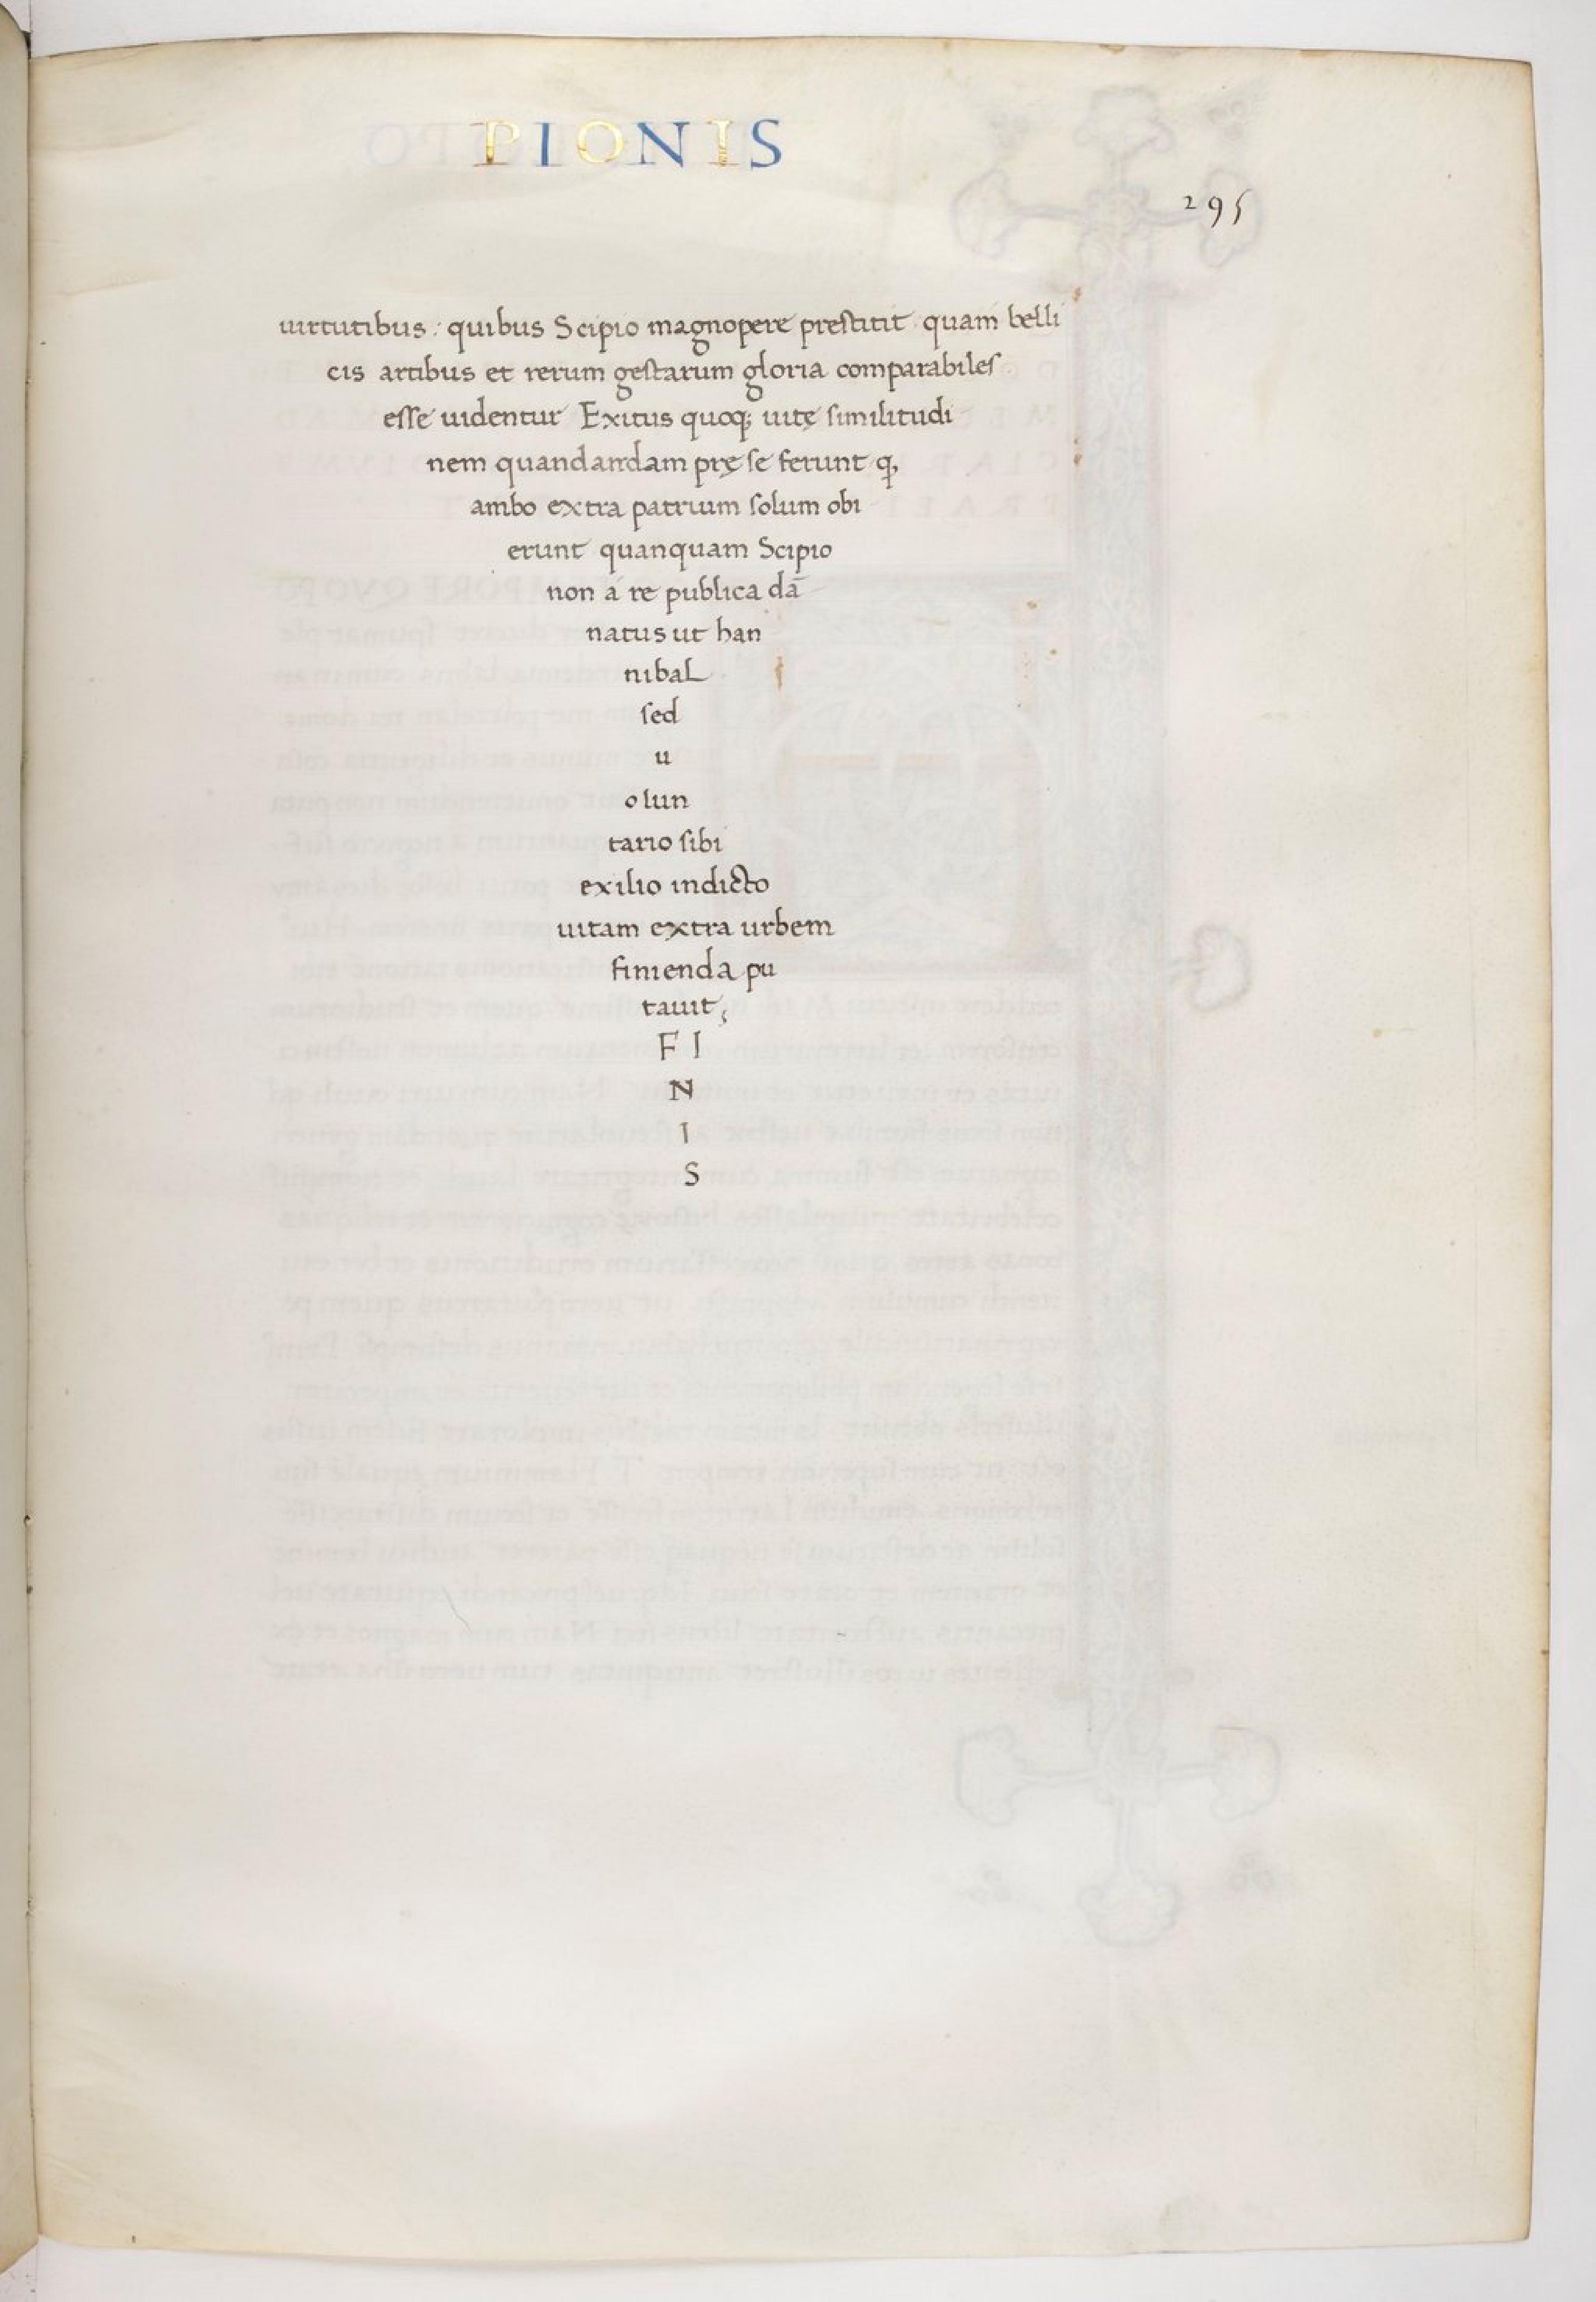 PIONIS
295
uirtutibus : quibus Scipio magnopere prestitit quam belli
cis artibus et rerum gestarum gloria comparabiles
esse uidentur Exitus quoq; uitę similitudi
nem quandandam prę se ferunt q,
ambo extra patrium solum obi
erunt quanquam Scipio
non á re publica dā
natus ut han
nibal
sed
u
olun
tario sibi
exilio indicto
uitam extra urbem
finienda pu
tauit;
F I
N
I
S